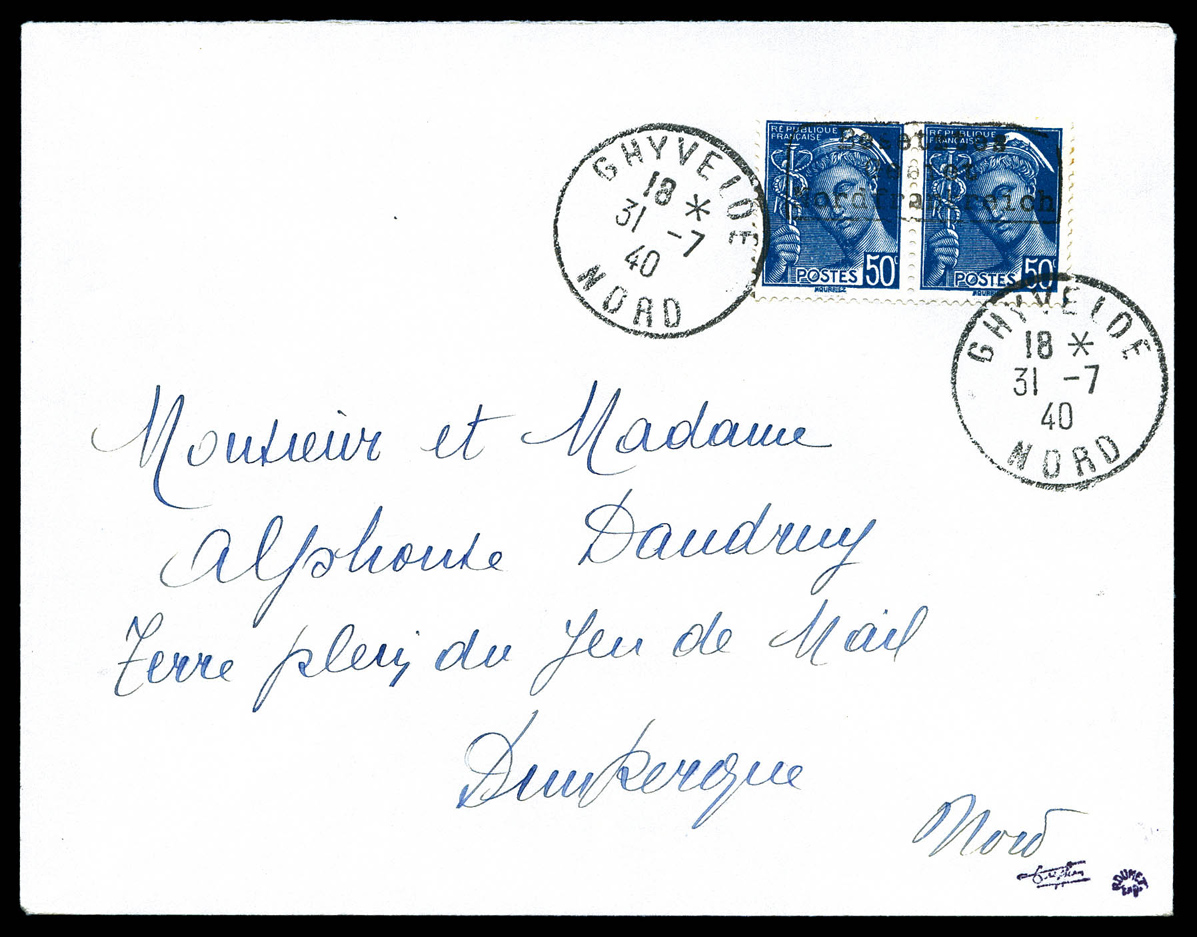 GHYVELDE
18 *
31 -7
40
NORD
RÉPUBLIQUE
FRANÇAISE
POSTES 50c
RÉPUBLIQUE
FRANÇAISE
POSTES 50c
Besetztes
Gebiet
Nordfrankreich
GHYVELDE
18 *
31 -7
40
NORD
Monsieur et Madame
Alphonse Dandruy
Terre plein du Jeu de Mail
Dunkerque
Nord
ROUMET
Exp.